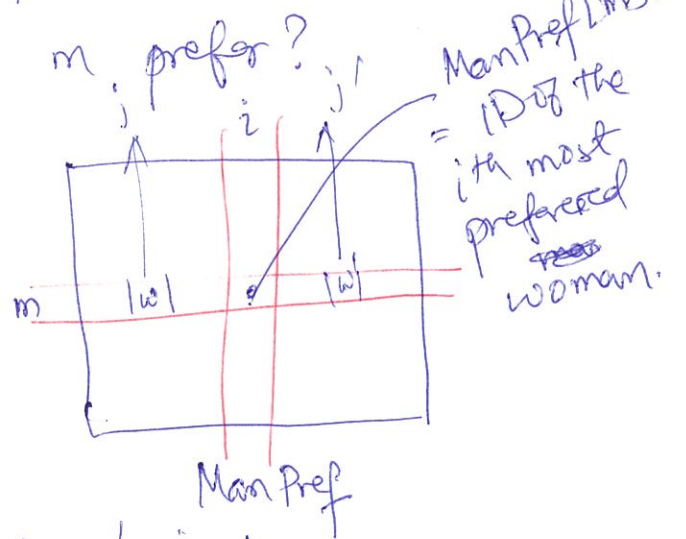 m prefer?
j i j'
ManPref
= ID of the
ith most
preferred
woman.
m |w| |w|
ManPref